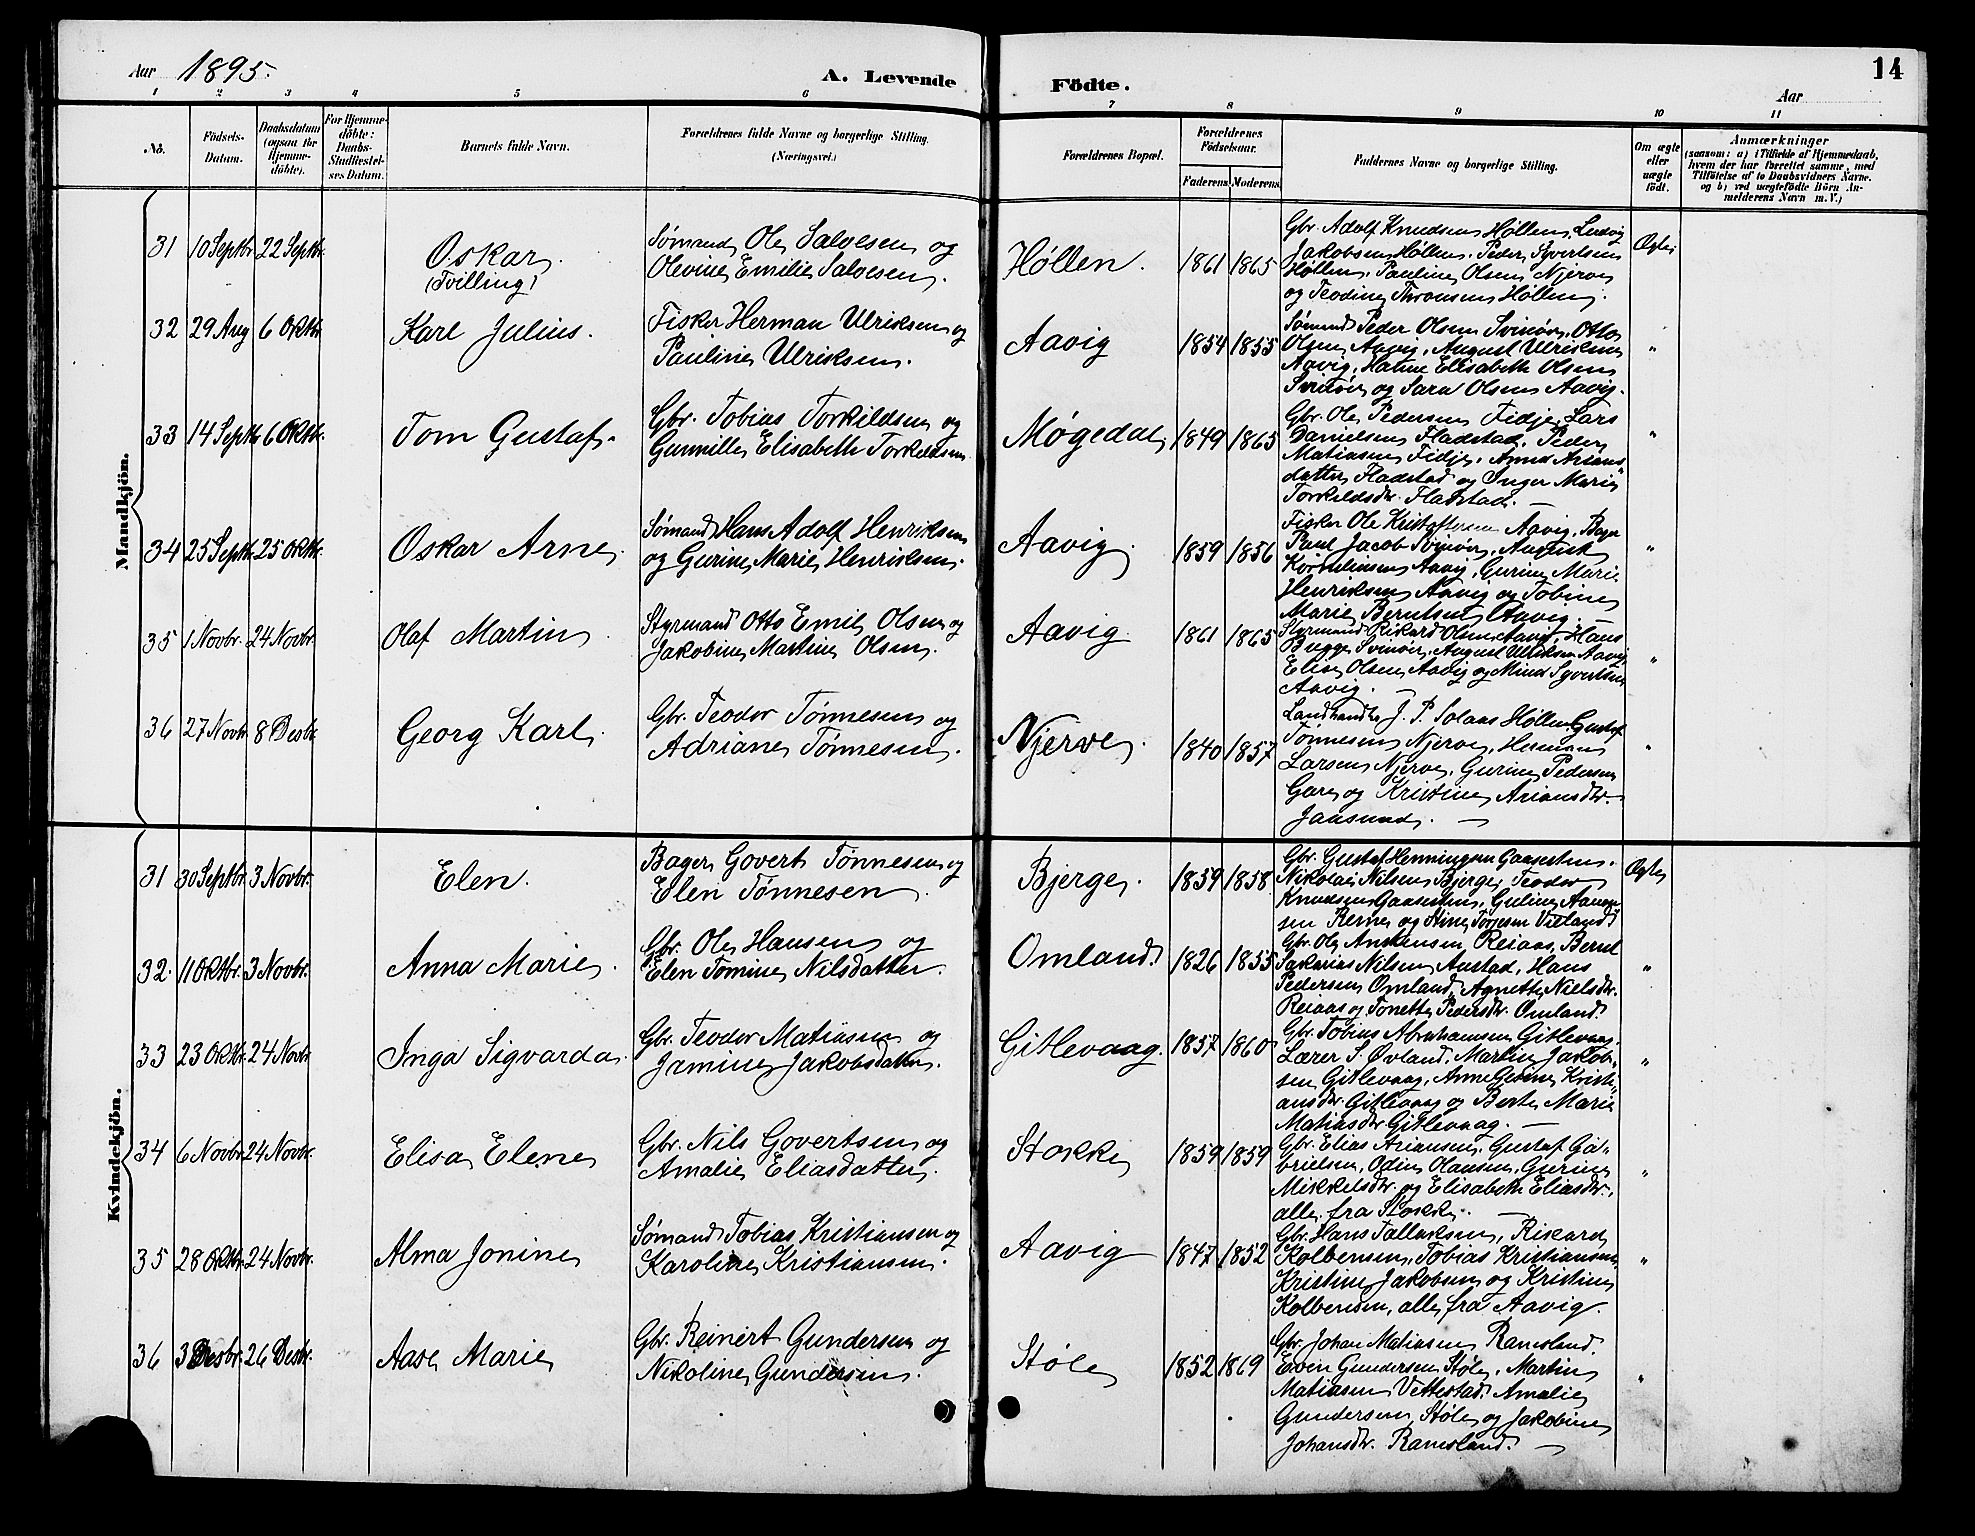 Aar 1895.
A. Levende Födte.
14
Aar
1 2 3 4 5 6 7 8 9 10 11
No.
Födsels-Datum.
Daabsdatum (ogsaa for Hjemme-döbte).
For Hjemme-döbte: Daabs-Stadfæstel-ses Datum.
Barnets fulde Navn.
Forældrenes fulde Navne og borgerlige Stilling. (Næringsvei.)
Forældrenes Bopæl.
Forældrenes Födselsaar.
Faderens Moderens
Faddernes Navne og borgerlige Stilling.
Om ægte eller uægte født.
Anmærkninger
(saasom: a) i Tilfælde af Hjemmedaab,
hvem der har forrettet samme, med
Tilföielse af to Daabsvidners Navne.
og b) ved uægtefödte Börn An-
melderens Navn m. V.)
Mandkjön.
31 10 Septbr. 22 Septbr. Oskar (Tvilling)
Sømand Ole Salvesen og
Olevine Emilie Salvesen.
Høllen. 1861 1865
Gbr. Adolf Knudsen Høllen, Ludvig
Jakobsen Høllen, Peder Syvertsen
Høllen, Pauline Olsen Njerve
og Teodine Thronsen Høllen.
Ægte
32 29 Aug 6 Oktbr. Karl Julius.
Fisker Herman Ulriksen og
Pauline Ulriksen.
Aavig 1854 1855
Sømand Peder Olsen Svinør, Otto
Olsen Aavig, August Ulriksen
Aavig, Hatine Elisabeth Olsen
Svinør og Sara Olsen Aavig.
"
33 14 Septbr 6 Oktbr. Tom Gustaf.
Gbr. Tobias Torkildsen og
Gunnille Elisabeth Torkildsen
Møgedal 1849 1865
Gbr. Ole Pedersen Fidje, Lars
Danielsen Fladstad, Peder
Matiasen Fidje, Anne Arians-
datter Fladstad og Inger Marie
Torkildsdtr. Fladstad. —
"
34 25 Septbr. 25 Oktbr. Oskar Arne.
Sømand Hans Adolf Henriksen
og Gurine Marie Henriksen.
Aavig. 1859 1856
Fisker Ole Kristoffersen Aavig,
Paul Jacob Svinør, August
Kornelius­sen Aavig, Gurine Marie
Henriksen Aavig og Tobine
Marie Berntsen Aavig. —
"
35 1 Novbr. 24 Novbr. Olaf Martin.
Styrmand Otto Emil Olsen og
Jakobine Martine Olsen.
Aavig. 1861 1865
Styrmand Rikard Olsen Aavig, Hans
Bugge Svinør, August Ulriksen Aavig
Elise Olsen Aavig og Mina Syvertsen
Aavig. —
"
36 27 Novbr. 8 Desbr. Georg Karl.
Gbr. Teodor Tønnesen og
Adriane Tønnesen.
Njerve. 1840 1857
Landhandler J. P. Solaas Høllen, Gustaf
Tønnesen Njerve, Herman
Larsen Njerve, Gurine Pedersen
Gare og Kristine Ariansdtr.
Jaasund. —
"
Kvindekjön.
31 30 Septbr. 3 Novbr. Elen.
Bager Govert Tønnesen og
Elen Tønnesen.
Bjerge. 1859 1858
Gbr. Gustaf Henningsen Gaasesten,
Nikolai Nilsen Bjerge, Teodor
Knudsen Gaasesten, Guline Aanen-
sen Rerne og Stine Torjesen Vieland
Ægte
32. 11 Oktbr. 3 Novbr. Anna Marie.
Gbr. Ole Hansen og
Elen Tomine Nilsdatter.
Omland. 1826 1855
Gbr. Ole Reiaas, Bernt
Sakarias Nilsen Austad, Hans
Pedersen Omland, Agnette Nielsdtr.
Reiaas og Tonette Pedersdtr. Omland.
"
33 23 Oktbr. 24 Novbr. Inga Sigvarda.
Gbr. Teodor Matiasen og
Jamine Jakobsdatter.
Gitlevaag. 1857 1860
Gbr. Tobias Abrahamsen Gitlevaag.
Lærer S. Øvland, Martin Jakob-
sen Gitlevaag, Anne Gurine Kristi-
ansdtr. Gitlevaag og Berte Marie
Matiasdtr. Gitlevaag. —
"
34 6 Novbr. 24 Novbr. Elisa Elene
Gbr. Nils Govertsen og
Amalie Eliasdatter.
Stokke 1859 1859
Gbr. Elias Ariansen, Gustaf Ga-
brielsen, Odin Olausen, Gurine
Mikkelsdtr. og Elisabeth Eliasdtr.,
alle fra Stokke. —
"
35 28 Oktbr. 24 Novbr. Alma Jonine
Sømand Tobias Kristiansen og
Karoline Kristiansen.
Aavig 1847 1852
Gbr. Hans Tallaksen, Rikard
Kolbensen, Tobias Kristiansen,
Kristine Jakobsen og Kristine
Kolbensen, alle fra Aavig.
"
36 3 Desbr. 26 Desbr. Aase Marie
Gbr. Reinert Gundersen og
Nikoline Gundersen.
Støle 1852 1869
Gbr. Johan Matiasen Ramsland,
Even Gundersen Støle, Martin
Matiasen Vettestad, Amalie
Gundersen Støle og Jakobine
Johansdtr. Ramsland. —
"